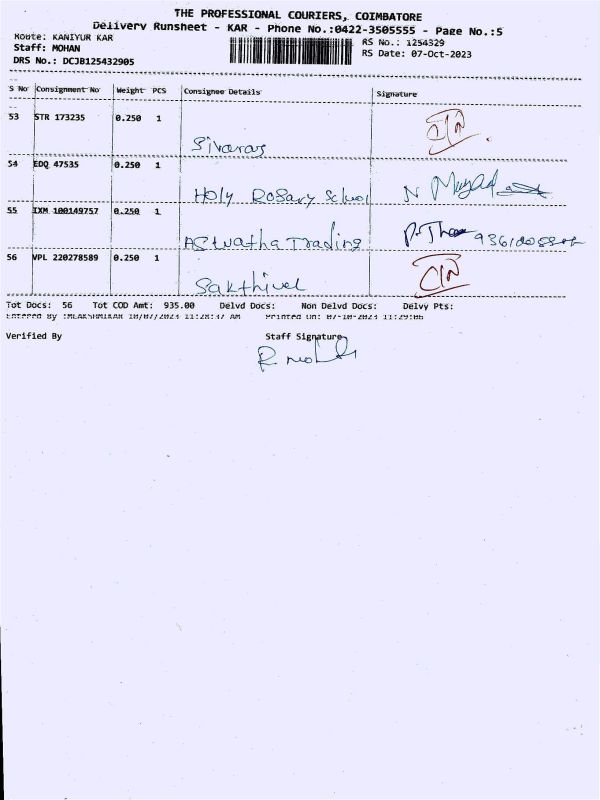 THE PROFESSIONAL COURIERS, COIMBATORE
Delivery Runsheet - KAR - Phone No.:0422-3505555 - Page No.:5
Route: KANIYUR KAR
RS No.: 1254329
Staff: MOHAN
RS Date: 07-Oct-2023
DRS No.: DCJB125432905
S No Consignment No Weight PCS Consignee Details Signature
53 STR 173235 0.250 1
Sivaraj
54 EDQ 47535 0.250 1
Holy Rosary School N
55 IXM 100149757 0.250 1
Aswatha Trading
56 VPL 220278589 0.250 1
Sakthivel
Tot Docs: 56 Tot COD Amt: 935.00 Delvd Docs: Non Delvd Docs: Delvy Pts:
Entered By :MLAKSHMIKAR 10/07/2023 11:28:37 AM Printed On: 07-10-2023 11:29:06
Verified By Staff Signature
R